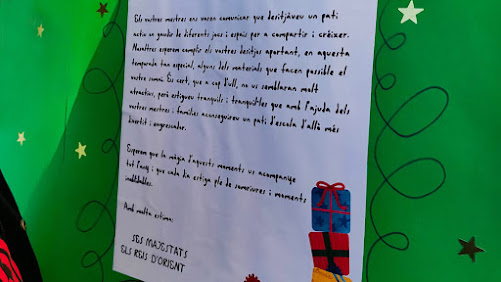 Els vostres mestres ens varen comunicar que desitjàveu un pati
actiu on gaudir de diferents jocs i espais per a compartir i créixer.
Nosaltres esperem complir els vostres desitjos aportant, en aquesta
temporada tan especial, alguns dels materials que facen possible el
vostre somni. És cert, que a cop d'ull, no us semblaran molt
atractius, però estigueu tranquils i tranquil·les que amb l'ajuda dels
vostres mestres i famílies aconseguireu un pati d'escola d'allò més
divertit i engrescador.
Esperem que la màgia d'aquests moments us acompanye
tot l'any i que cada dia estiga ple de somriures i moments
inoblidables.
Amb molta estima:
SES MAJESTATS
ELS REIS D'ORIENT